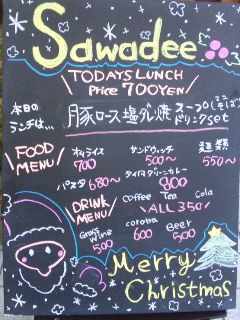 Sawadee
TODAYS LUNCH
Price 700YEN
本日の
ランチは…
豚ロース塩ダレ焼
スープ
ドリンクSet
FOOD
MENU
オムライス
700
サンドウィッチ
500〜
麺類
550〜
パスタ 680〜
タイ風グリーンカレー
800
DRINK
MENU
Coffee Tea Cola
ALL 350
Glass
Wine
500
corona
600
Beer
500
Merry
Christmas